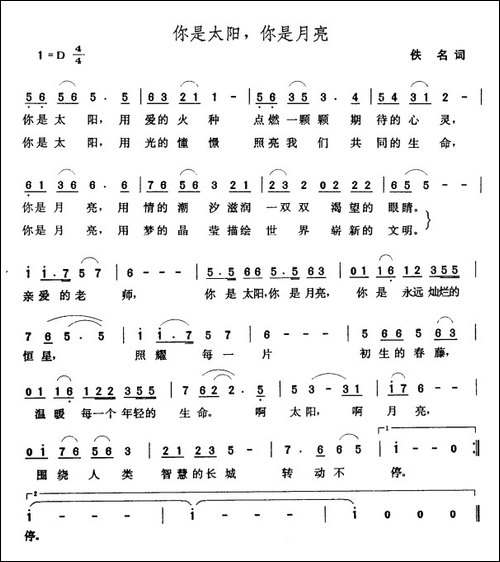 你是太阳，你是月亮
1=D 4/4 佚 名 词
5 6 5 6 5 · 5 | 6 3 2 1 1 - | 5 6 3 5 3 · 4 | 5 4 3 1 2 - |
你是 太 阳，用 爱的 火 种 点燃 一颗 颗 期 待的 心 灵，
你是 太 阳，用 光的 憧 憬 照亮 我们 共 同的 生 命，
6 1 3 6 6 · 6 | 7 6 5 6 3 2 2 1 | 2 3 2 0 2 2 | 2 6 5 5 - |
你是 月 亮，用 情的 潮 汐滋润 一双 双 渴望的 眼睛。
你是 月 亮，用 梦的 晶 莹描绘 世 界 崭新的 文明。
i i · 7 5 7 | 6 - - - | 5 · 5 6 6 5 · 5 6 3 | 0 1 1 6 1 2 3 5 5 |
亲 爱 的 老 师， 你 是 太阳，你 是 月亮， 你 是 永远 灿烂的
7 6 5 · 5 | i i · 7 5 7 | 6 - - - | 5 6 6 5 6 3 |
恒 星， 照 耀 每 一 片 初 生 的 春 藤，
0 1 1 6 1 2 2 3 5 5 | 7 6 2 2 · 5 | 5 3 - 3 1 | i 7 6 - |
温 暖 每一个 年轻的 生 命。 啊 太阳， 啊 月 亮，
0 i 7 6 5 6 3 | 2 1 2 3 5 - | 7 · 6 6 5 | 1 i - - 0 :||
围 绕 人 类 智慧的 长 城 转 动 不 停。
2 i - - - | i - - i | i - - - | i - - 0 ||
停。